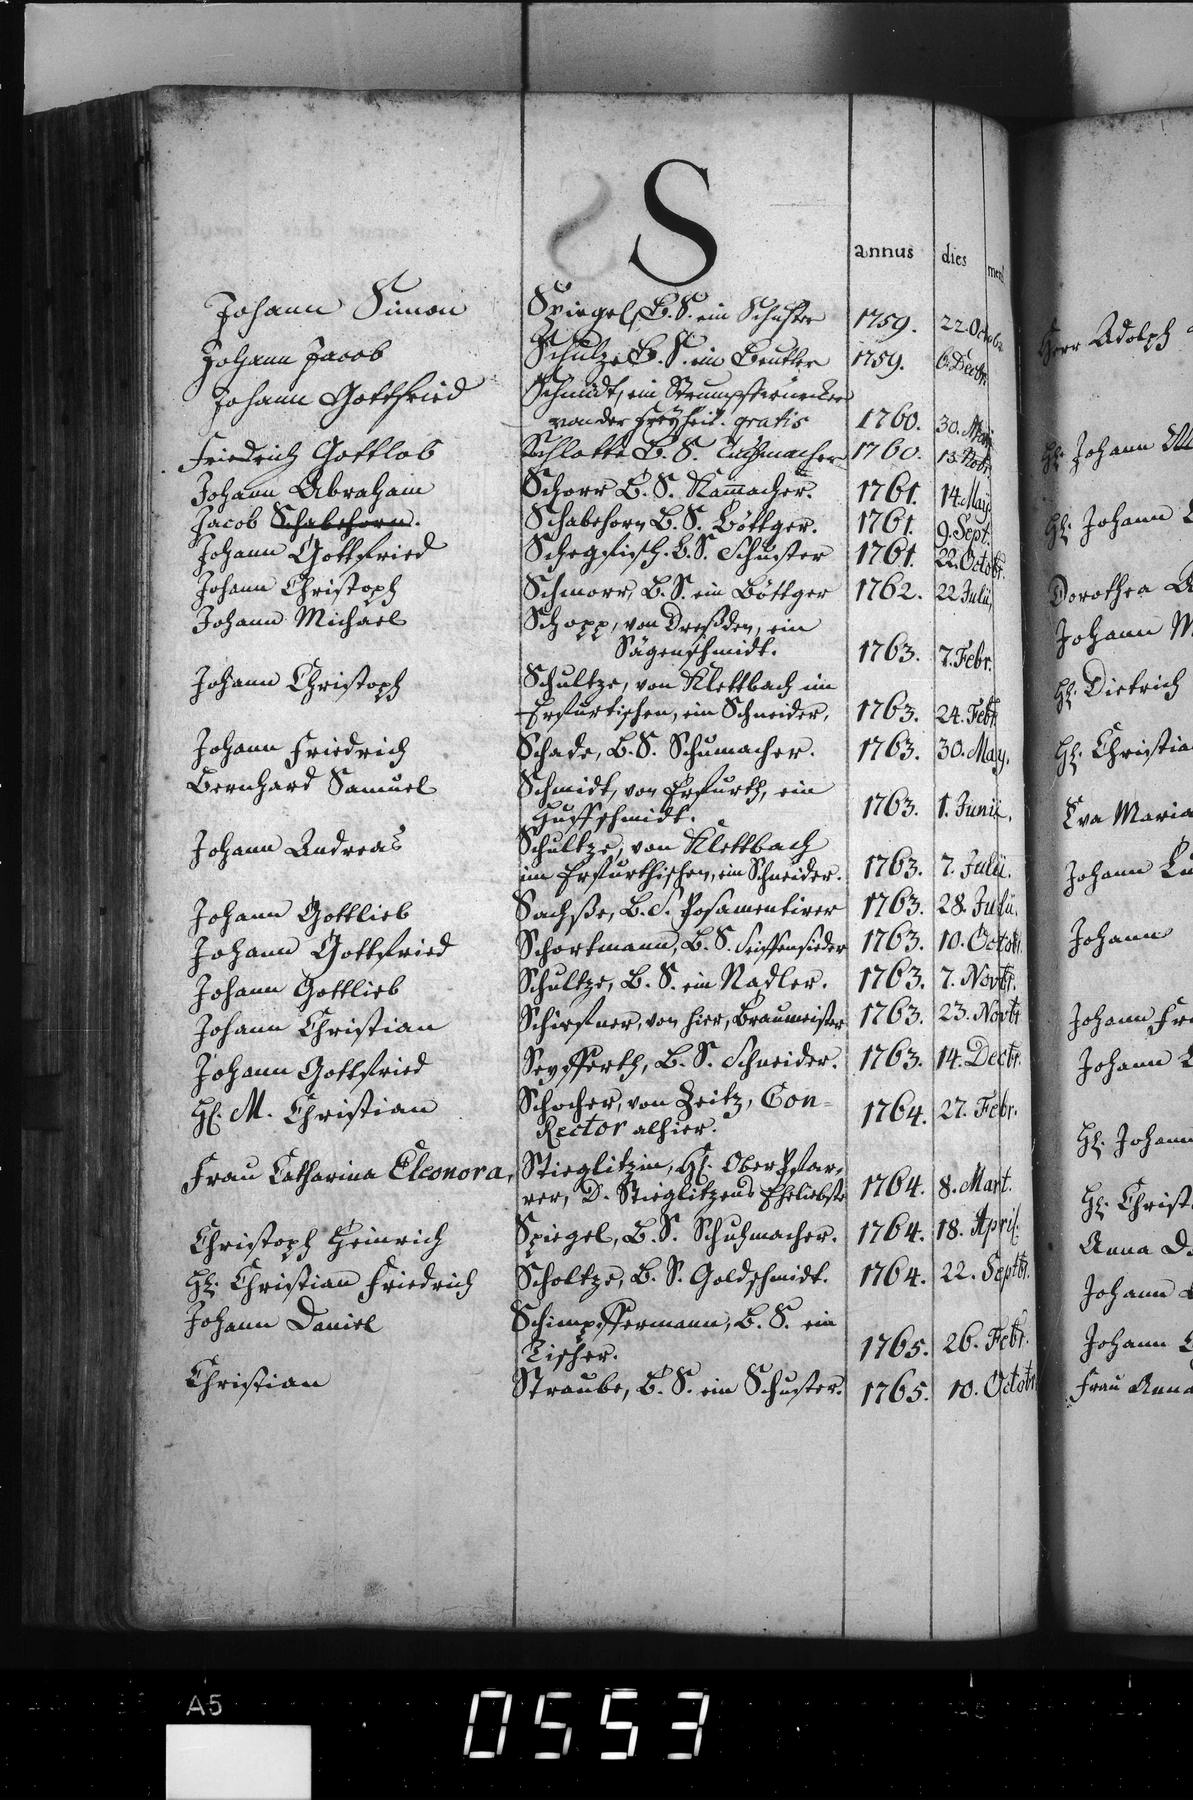 S
annus dies mens
Johann Simon Spiegel, B. S. ein Schuster 1759. 22. Octobr.
Johann Jacob Schulze B. S. ein Beutler 1759. 6. Decbr.
Johann Gottfried Schmidt, ein Strumpfwürcker
von der Freyheit. gratis 1760. 30. May
Friedrich Gottlob Schlotte B. S. Tuchmacher 1760. 13.
Johann Abraham Schorr B. S. Kammacher. 1761. 14. May.
Jacob Schabehorn. Schabehorn B. S. Böttger. 1761. 9. Sept.
Johann Gottfried Schegfisch. B. S. Schuster 1761. 22. Octobr.
Johann Christoph Schmorr, B. S. ein Böttger 1762. 22 Julii,
Johann Michael Schopp, von Dreßden, ein
Sägenschmidt. 1763. 7. Febr.
Johann Christoph Schultze, von Klettbach im
Erfurtischen, ein Schneider, 1763. 24. Febr.
Johann Friedrich Schade, B. S. Schumacher. 1763. 30. May.
Bernhard Samuel Schmidt, von Erfurth, ein
Huffschmidt. 1763. 1. Junii.
Johann Andreas Schultze, von Klettbach
im Erfurthischen, ein Schneider. 1763. 7. Julii.
Johann Gottlieb Sachße, B. S. Posamentirer 1763. 28. Julii.
Johann Gottfried Schortmann, B. S. Seiffensieder 1763. 10. Octobr.
Johann Gottlieb Schultze, B. S. ein Nadler. 1763. 7. Novbr.
Johann Christian Schirfner, von hier, Braumeister 1763. 23. Novbr
Johann Gottfried Seyfferth, B. S. Schneider. 1763. 14. Decbr.
H. M. Christian Schocher, von Zeitz, Con-
Rector alhier. 1764. 27. Febr.
Frau Catharina Eleonora, Stieglitzin, H. OberPfar-
rer, D. Stieglitzens Eheliebste 1764. 8. Mart.
Christoph Heinrich Spiegel, B. S. Schuhmacher. 1764. 18. April.
H. Christian Friedrich Scholtze, B. S. Goldschmidt. 1764. 22. Septbr.
Johann Daniel Schimpffermann, B. S. ein
Tischer. 1765. 26. Febr.
Christian Straube, B. S. ein Schuster. 1765. 10. Octobr
Herr Adolph
H. Johann
H. Johann
Dorothea
Johann
H. Dietrich
H. Christia
Eva Maria
Johann
Johann
Johann Fri
Johann
H. Johann
H. Christ
Anna
Johann
Johann
Frau Anna
A5
0553